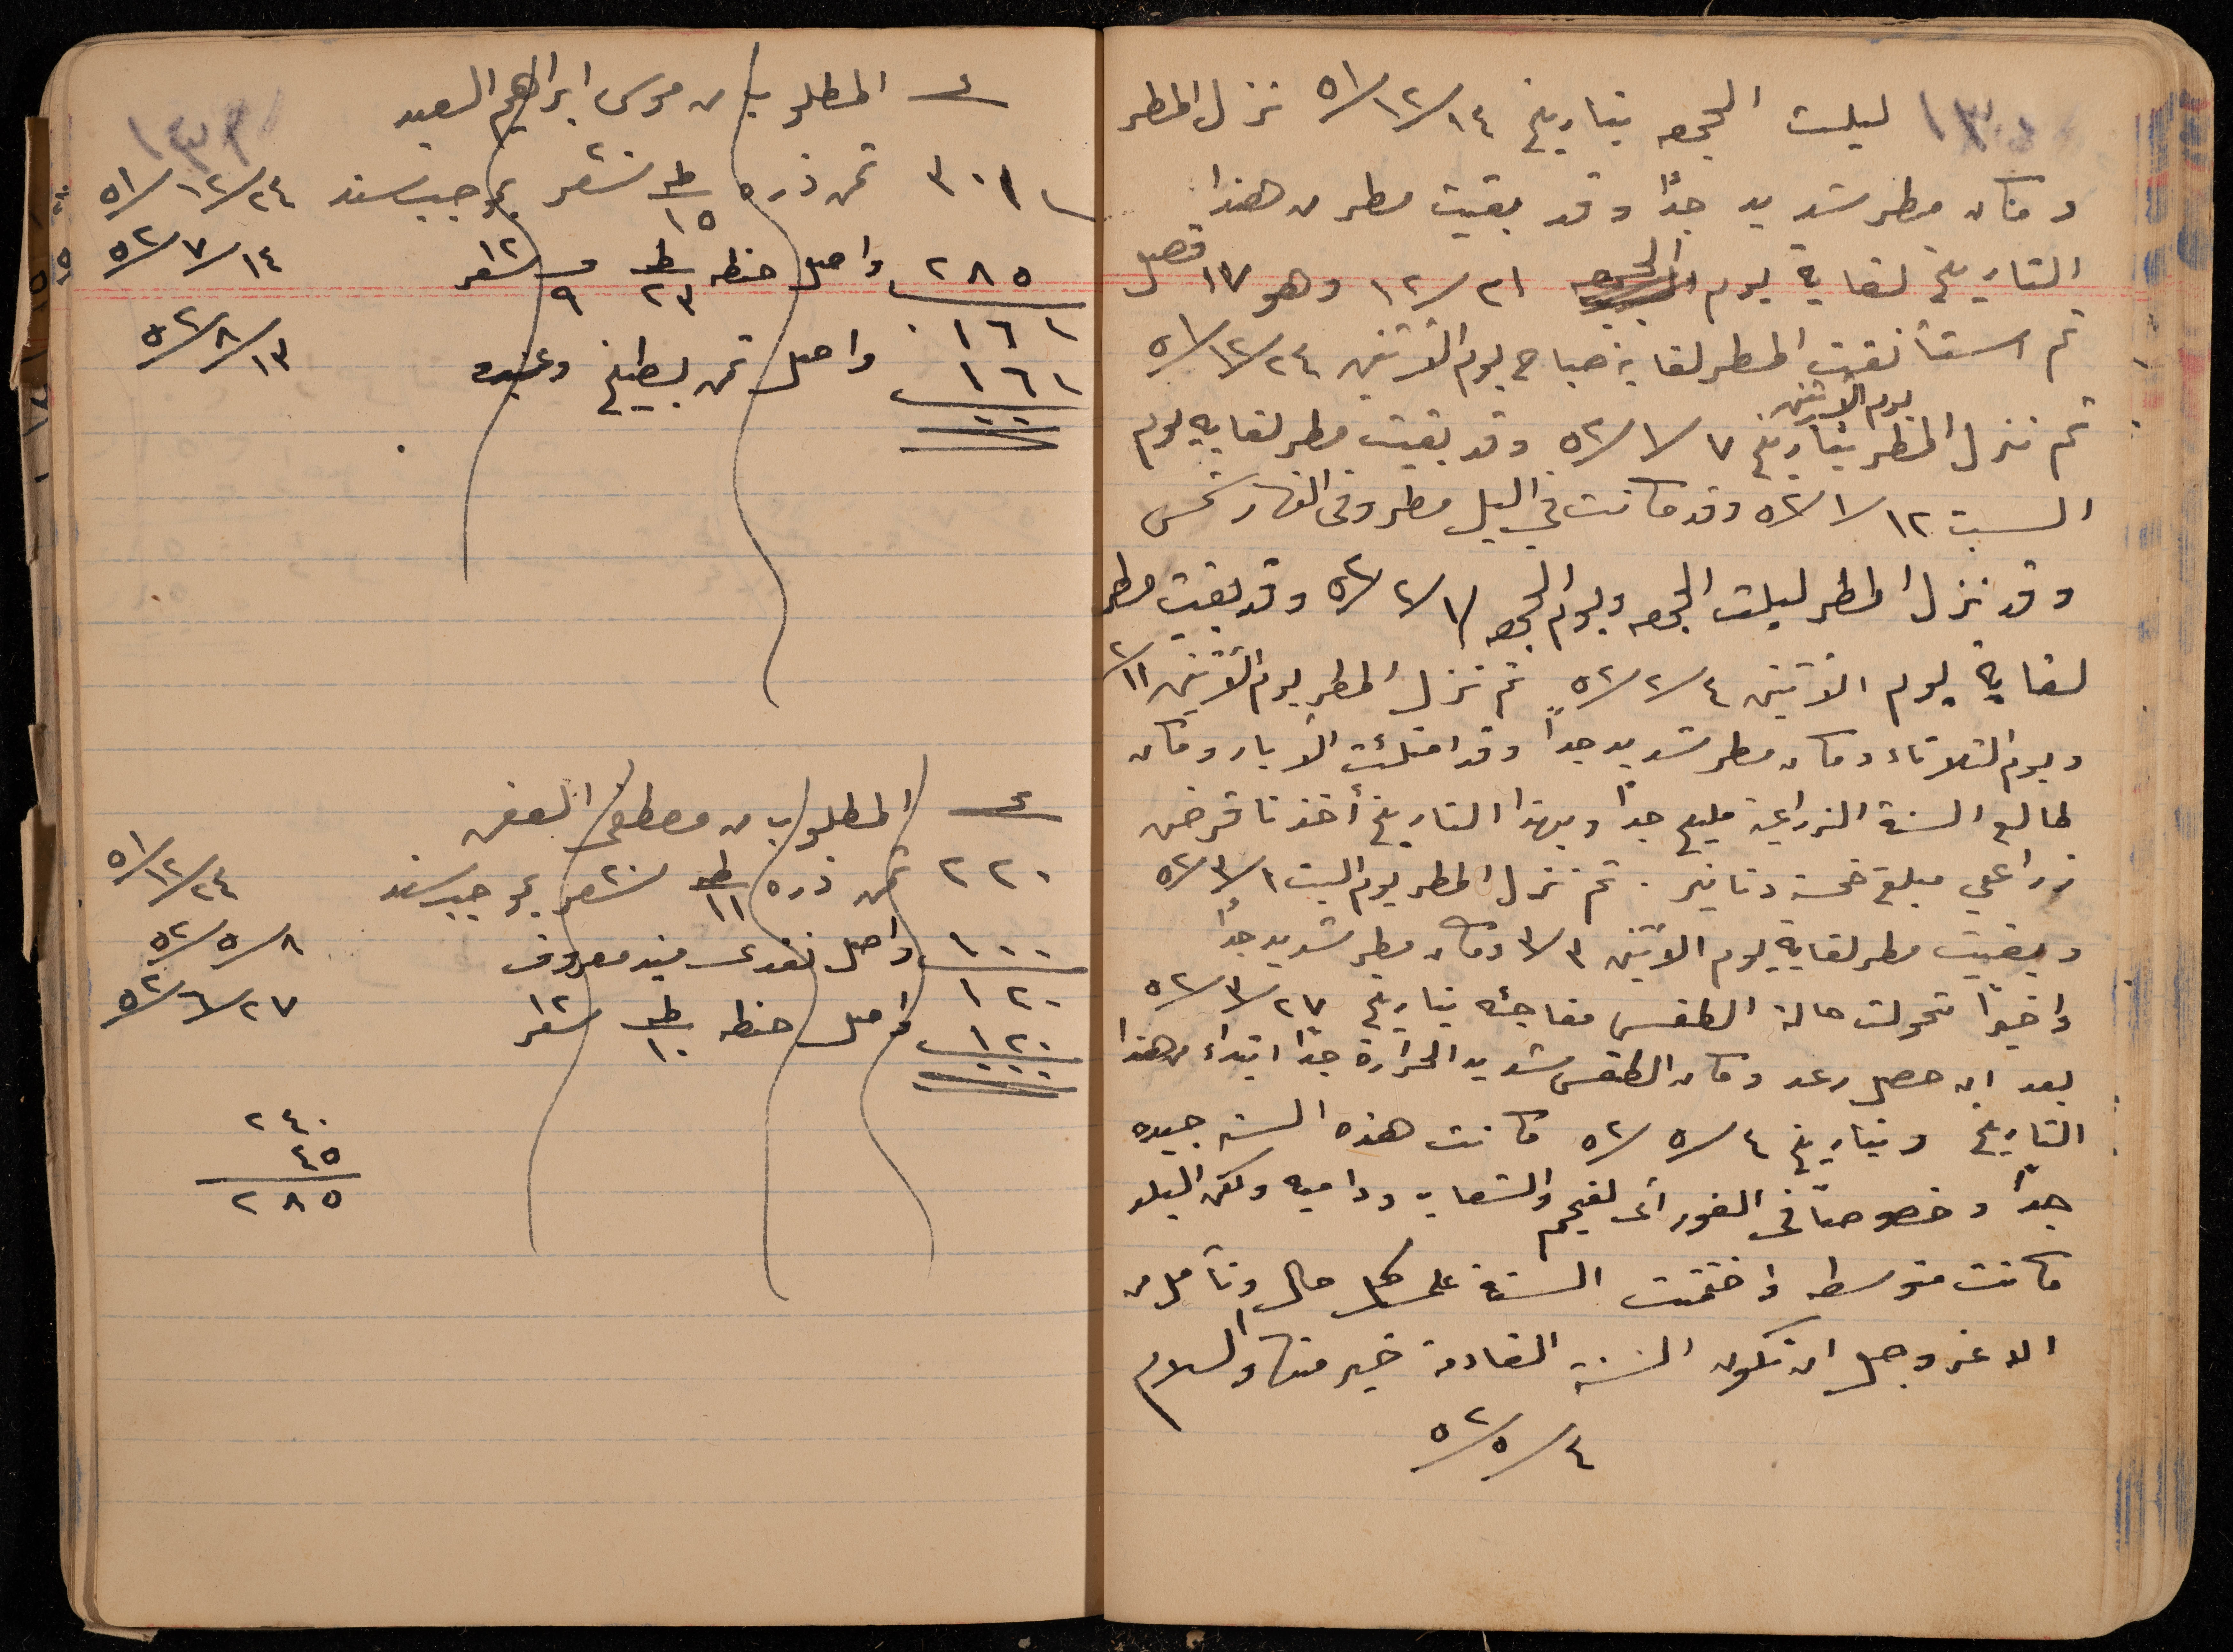 ليلت الجمعه بتاريخ ١٤/١٢/٥١ نزل المطر
وكان مطر شديد جداً وقد بقيت مطر من هذا
التاريخ لغاية يوم الجمعه ٢١/١٢ وهو ١٧ فصل
ثم استأنفت المطر لغاية صباح يوم الاثنين ٢٤/١٢/٥١
يوم الاثنين
ثم نزل المطر بتاريخ ٧/١/٥٢ وقد بقيت مطر لغايه يوم
السبت ١٢/١/٥٢ وقد كانت في اليل مطر وفي النهار شمس
وقد نزل المطر ليلت الجمعه ويوم الجمعه ١/٢/٥٢ وقد بقيت مطر
لغاية يوم الاثنين ٤/٢/٥٢ ثم نزل المطر يوم الاثنين ١١/٢
ويوم الثلاثاء وكان مطر شديد جداً وقد امتلئت الابار وكان
طالع السنة الزراعية مليح جداً وبهذا التاريخ أخذنا قرض
زراعي مبلغ خمسة دنانير . ثم نزل المطر يوم السبت ١/٣/٥٢
وبقيت مطر لغاية يوم الاثنين ٣/٣ وكان مطر شديد جداً
واخيراً تحولت حالة الطقس مفاجئه بتاريخ ٢٧/٣/٥٢
بعد ان حصل رعد وكان الطقس شديد الحرارة جداً ابتداء من هذا
التاريخ وبتاريخ ٤/٥/٥٢ كانت هذه السنه جيده
جداً وخصوصاً في الغور اى لفجم والشعاب وداميه ولكن البلد
كانت متوسطه واختتمت السنة على كل حال ونأمل من
الله عز وجل ان تكون السنة القادمة خير منها والسلام
٤/٥/٥٢
المطلوب من موسى ابراهيم السعيد
٣٠١ ثمن ذره ط ١٥ شعر بموجب سند ٢٤/١٢/٥١
٢٨٥ واصل حنطه ط ٢٣ ٩ شعر ١٢ ١٤/٧/٥٢
١٦١
١٦١ واصل ثمن بطيخ وغيره ١٣/٨/٥٢
٠٠
المطلوب من مصطفى
٢٢٠ ثمن ذره ط ١١ شعر بموجب سند ٢٤/١٢/٥١
١٠٠ واصل نقدى فيد معروف ٨/٥/٥٢
١٢٠
١٢٠ واصل حنطه ط ١٠ شعر ١٢ ٢٧/٦/٥٢
٠٠٠
٢٤٠
٤٥
٢٨٥